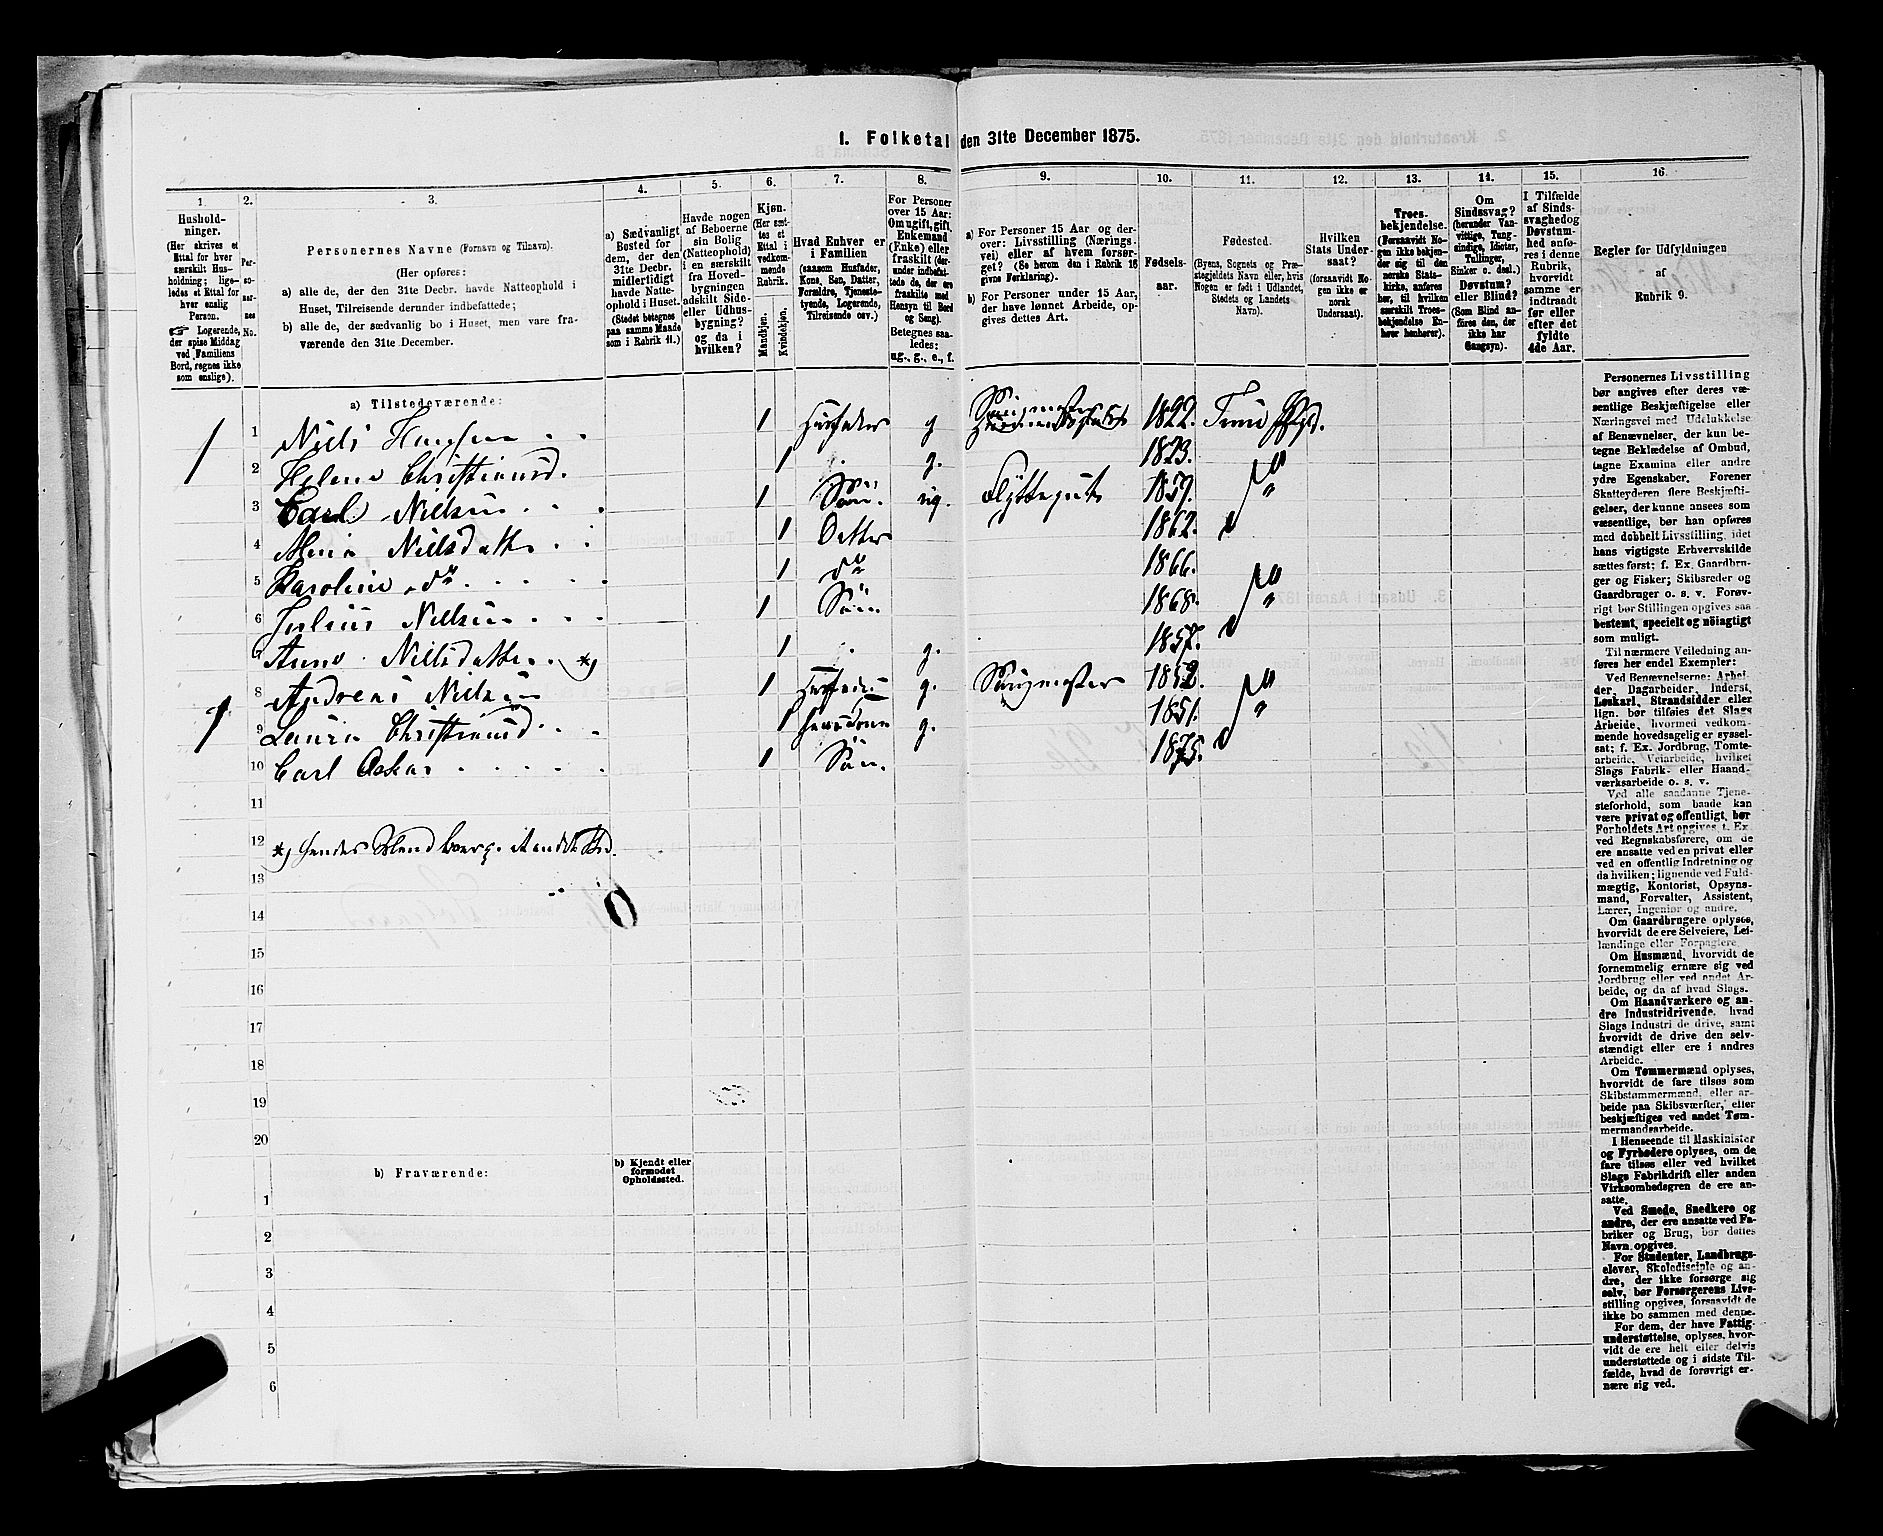 1. Folketal den 31te December 1875.
1. 2. 3. 4. 5. 6. 7. 8. 9. 10. 11. 12. 13. 14. 15. 16.
Hushold-
ninger.
(Her skrives et
Ettal for hver
særskilt Hus-
holdning; lige-
ledes et Ettal for
hver enslig
Person.
☞ Logerende,
der spise Middag
ved Familiens
Bord, regnes ikke
som enslige).
Per-
so-
ner-
nes
No.
Personernes Navne (Fornavn og Tilnavn).
(Her opføres:
a) alle de, der den 31te Decbr. havde Natteophold i
Huset, Tilreisende derunder indbefattede;
b) alle de, der sædvanlig bo i Huset, men vare fra-
værende den 31te December.
a) Sædvanligt
Bosted for
dem, der den
31te Decbr.
midlertidigt
havde Natte-
ophold i Huset.
(Stedet betegnes
paa samme Maade
som i Rubrik 11.)
Havde nogen
af Beboerne
sin Bolig
(Natteophold)
i en særskilt
fra Hoved-
bygningen
adskilt Side-
eller Udhus-
bygning?
og da i
hvilken?
Kjøn.
(Her sæt-
tes et
Ettal i
vedkom-
mende
Rubrik.
Mandkjøn.
Kvindekjøn.
Hvad Enhver er
i Familien
(saasom Husfader,
Kone, Søn, Datter,
Forældre, Tjeneste-
tyende, Logerende,
Tilreisende osv.)
For Personer
over 15 Aar:
Om ugift, gift,
Enkemand
(Enke) eller
fraskilt (der-
under indbefat-
tede de, der ere
fraskilte med
Hensyn til Bord
og Seng).
Betegnes saa-
ledes:
ug., g., e., f.
a) For Personer 15 Aar og der-
over: Livsstilling (Nærings-
vei) eller af hvem forsør-
get? (Se herom den i Rubrik 16
givne Forklaring).
b) For Personer under 15 Aar,
der have lønnet Arbeide, op-
gives dettes Art.
Fødsels-
aar.
Fødested.
(Byens, Sognets og Præ-
stegjeldets Navn eller, hvis
Nogen er født i Udlandet,
Stedets og Landets
Navn).
Hvilken
Stats Under-
saat?
(forsaavidt No-
gen ikke er
norsk
Undersaat).
Troes-
bekjendelse.
(Forsaavidt No-
gen ikke bekjen-
der sig til den
norske Stats-
kirke, anføres
her, til hvilken
særskilt Troes-
bekjendelse En-
hver henhører).
Om
Sindssvag?
(herunder Van-
vittige, Tung-
sindige, Idioter,
Tullinger,
Sinker o. desl.)
Døvstum?
eller Blind?
(Som Blind an-
føres den, der
ikke har
Gangsyn).
I Tilfælde
af Sinds-
svaghed og
Døvstum-
hed anfø-
res i denne
Rubrik,
hvorvidt
samme er
indtraadt
før eller
efter det
fyldte
4de Aar.
Regler for Udfyldningen
af
Rubrik 9.
a) Tilstedeværende:
1 1 Niels Hansen 1 Husfader g Saugmester 1822. Tune Prgjd.
2 Helene Christiansd. 1 g. 1823. "
3 Carl Nielsen 1 Søn. ug. Flyttegut 1859. "
4 Maria Nielsdatter 1 Datter 1862.
5 Karoline do 1 do 1866. "
6 Julius Nielsen 1 Søn 1868. "
7 Anne Nielsdatter *) 1 g. 1857.
1 8 Andreas Nielsen 1 Husfader g. Saugmester 1852. "
9 Laura Christiansd 1 g. 1851. "
10 Carl Oskar 1 Søn. 1875.
11
12 *)
13
14 6
15
16
17
18
19
20
b) Fraværende:
b) Kjendt eller
formodet
Opholdssted.
1
2
3
4
5
6
Personernes Livsstilling
bør angives efter deres væ-
sentlige Beskjæftigelse eller
Næringsvei med Udelukkelse
af Benævnelser, der kun be-
tegne Beklædelse af Ombud,
tagne Examina eller andre
ydre Egenskaber. Forener
Skatteyderen flere Beskjæfti-
gelser, der kunne ansees som
væsentlige, bør han opføres
med dobbelt Livsstilling, idet
hans vigtigste Erhvervskilde
sættes først; f. Ex. Gaardbru-
ger og Fisker; Skibsreder og
Gaardbruger o. s. v. Forøv-
rigt bør Stillingen opgives saa
bestemt, specielt og nöiagtigt
som muligt.
Til nærmere Veiledning an-
føres her endel Exempler:
Ved Benævnelserne: Arbei-
der, Dagarbeider, Inderst,
Løskarl, Strandsidder eller
lign. bør tilføies det Slags
Arbeide, hvormed vedkom-
mende hovedsagelig er syssel-
sat; f. Ex. Jordbrug, Tomte-
arbeide, Veiarbeide, hvilket
Slags Fabrik- eller Haand-
værksarbeide o. s. v.
Ved alle saadanne Tjene-
steforhold, som baade kan
være privat og offentligt, bør
Forholdets Art opgives, t. Ex.
ved Regnskabsførere, om de
ere ansatte ved en privat eller
ved en offentlig Indretning og
da hvilken; lignende ved Fuld-
mægtig, Kontorist, Opsyns-
mand, Forvalter, Assistent,
Lærer, Ingeniør og andre.
Om Gaardbrugere oplyses,
hvorvidt de ere Selveiere, Lei-
lændinge eller Forpagtere.
Om Husmænd, hvorvidt de
fornemmelig ernære sig ved
Jordbrug eller ved andet Ar-
beide, og da af hvad Slags.
Om Haandværkere og an-
dre Industridrivende, hvad
Slags Industri de drive, samt
hvorvidt de drive den selv-
stændigt eller ere i andres
Arbeide.
Om Tømmermænd oplyses,
hvorvidt de fare tilsøs som
Skibstømmermænd, eller ar-
beide paa Skibsværfter, eller
beskjæftiges ved andet Tøm-
mermandsarbeide.
I Henseende til Maskinister
og Fyrbødere oplyses, om de
fare tilsøs eller ved hvilket
Slags Fabrikdrift eller anden
Virksomhedsgren de ere an-
satte.
Ved Smede, Snedkere og
andre, der ere ansatte ved Fa-
briker og Brug, bør dettes
Navn opgives.
For Studenter, Landbrugs-
elever, Skoledisciple og an-
dre, der ikke forsørge sig
selv, bør Forsørgerens Livs-
stilling opgives, forsaavidt de
ikke bo sammen med denne.
For dem, der have Fattig-
understøttelse, oplyses, hvor-
vidt de ere helt eller delvis
understøttede og i sidste Til-
fælde, hvad de forøvrigt er-
nære sig ved.